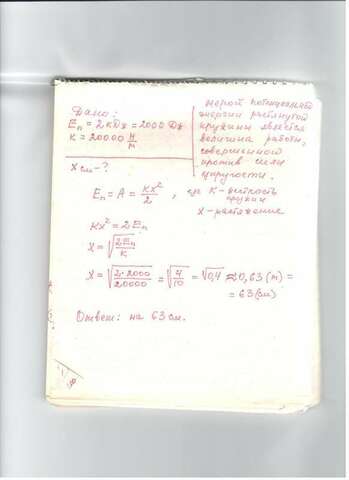 Дано:
Eп = 2 кДж = 2000 Дж
K = 20000 Н/м
X см - ?
мерой потенциальной
энергии растянутой
пружины является
величина работы,
совершенной
против силы
упругости.
Eп = A = KX²/2, где K - жесткость
пружин
X - растяжение
KX² = 2Eп
X = √(2Eп/K)
X = √(2·2000/20000) = √(4/10) = √0,4 ≈ 0,63 (м) =
= 63 (см)
Ответ: на 63 см.